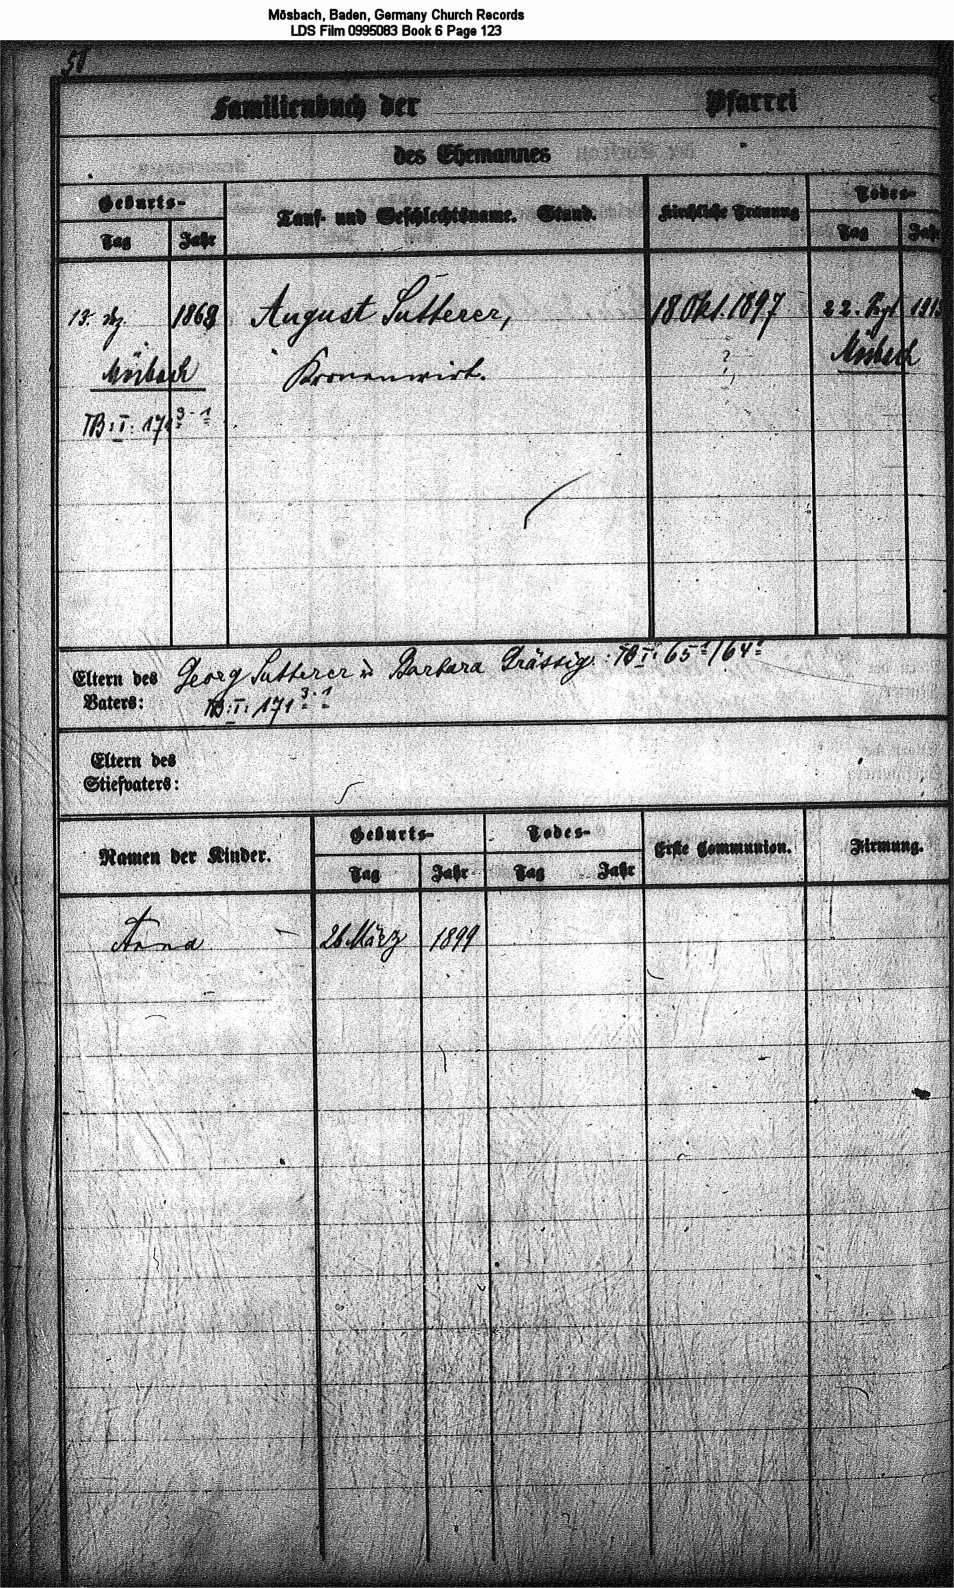 Mösbach, Baden, Germany Church Records
LDS Film 0995083 Book 6 Page 123
Familienbuch der Pfarrei
des Ehemannes
Geburts-
Tauf- und Geschlechtsname. Stand.
Kirchliche Trauung
Todes-
Tag Jahr
Tag Jahr
13. 1868 August Sutterer, 18 Okt. 1897 22.
Mösbach Kronenwirt. ? Mösbach
TB: I: 171 3-1
Eltern des Vaters: Georg Sutterer u Barbara TB I: 65 /64
TB: I: 171 3-1
Eltern des
Stiefvaters:
Namen der Kinder.
Geburts-
Todes-
Erste Communion.
Firmung.
Tag Jahr
Tag Jahr
Anna 26 März 1899